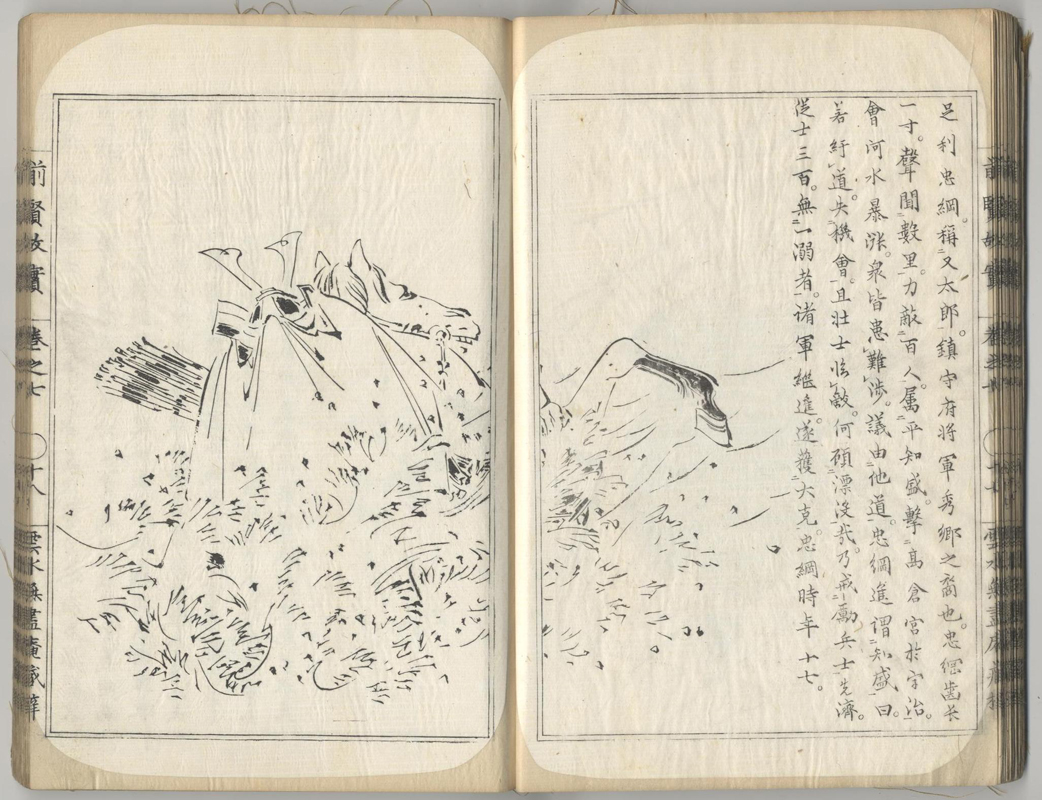 前賢故實 卷之七 〇十七 雲水無盡庵藏梓
足利忠綱。稱又太郎。鎮守府將軍秀郷之裔也。忠綱齒长
一寸。聲聞數里。力敵百人。属平知盛。擊髙倉宮於宇治。
會河水暴漲。衆皆患難渉。議由他道。忠綱進謂知盛曰。
若紆道。失機會。且壮士臨敵。何顧漂没哉。乃戒勵兵士先濟。
従士三百。無一溺者。诸軍継進。遂獲大克。忠綱時年十七。
前賢故實 卷之七 〇十八 雲水無盡庵藏梓